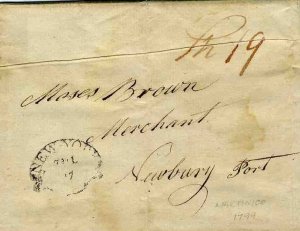 19
Moses Brown
Merchant
Newbury Port
NEW YORK
1799